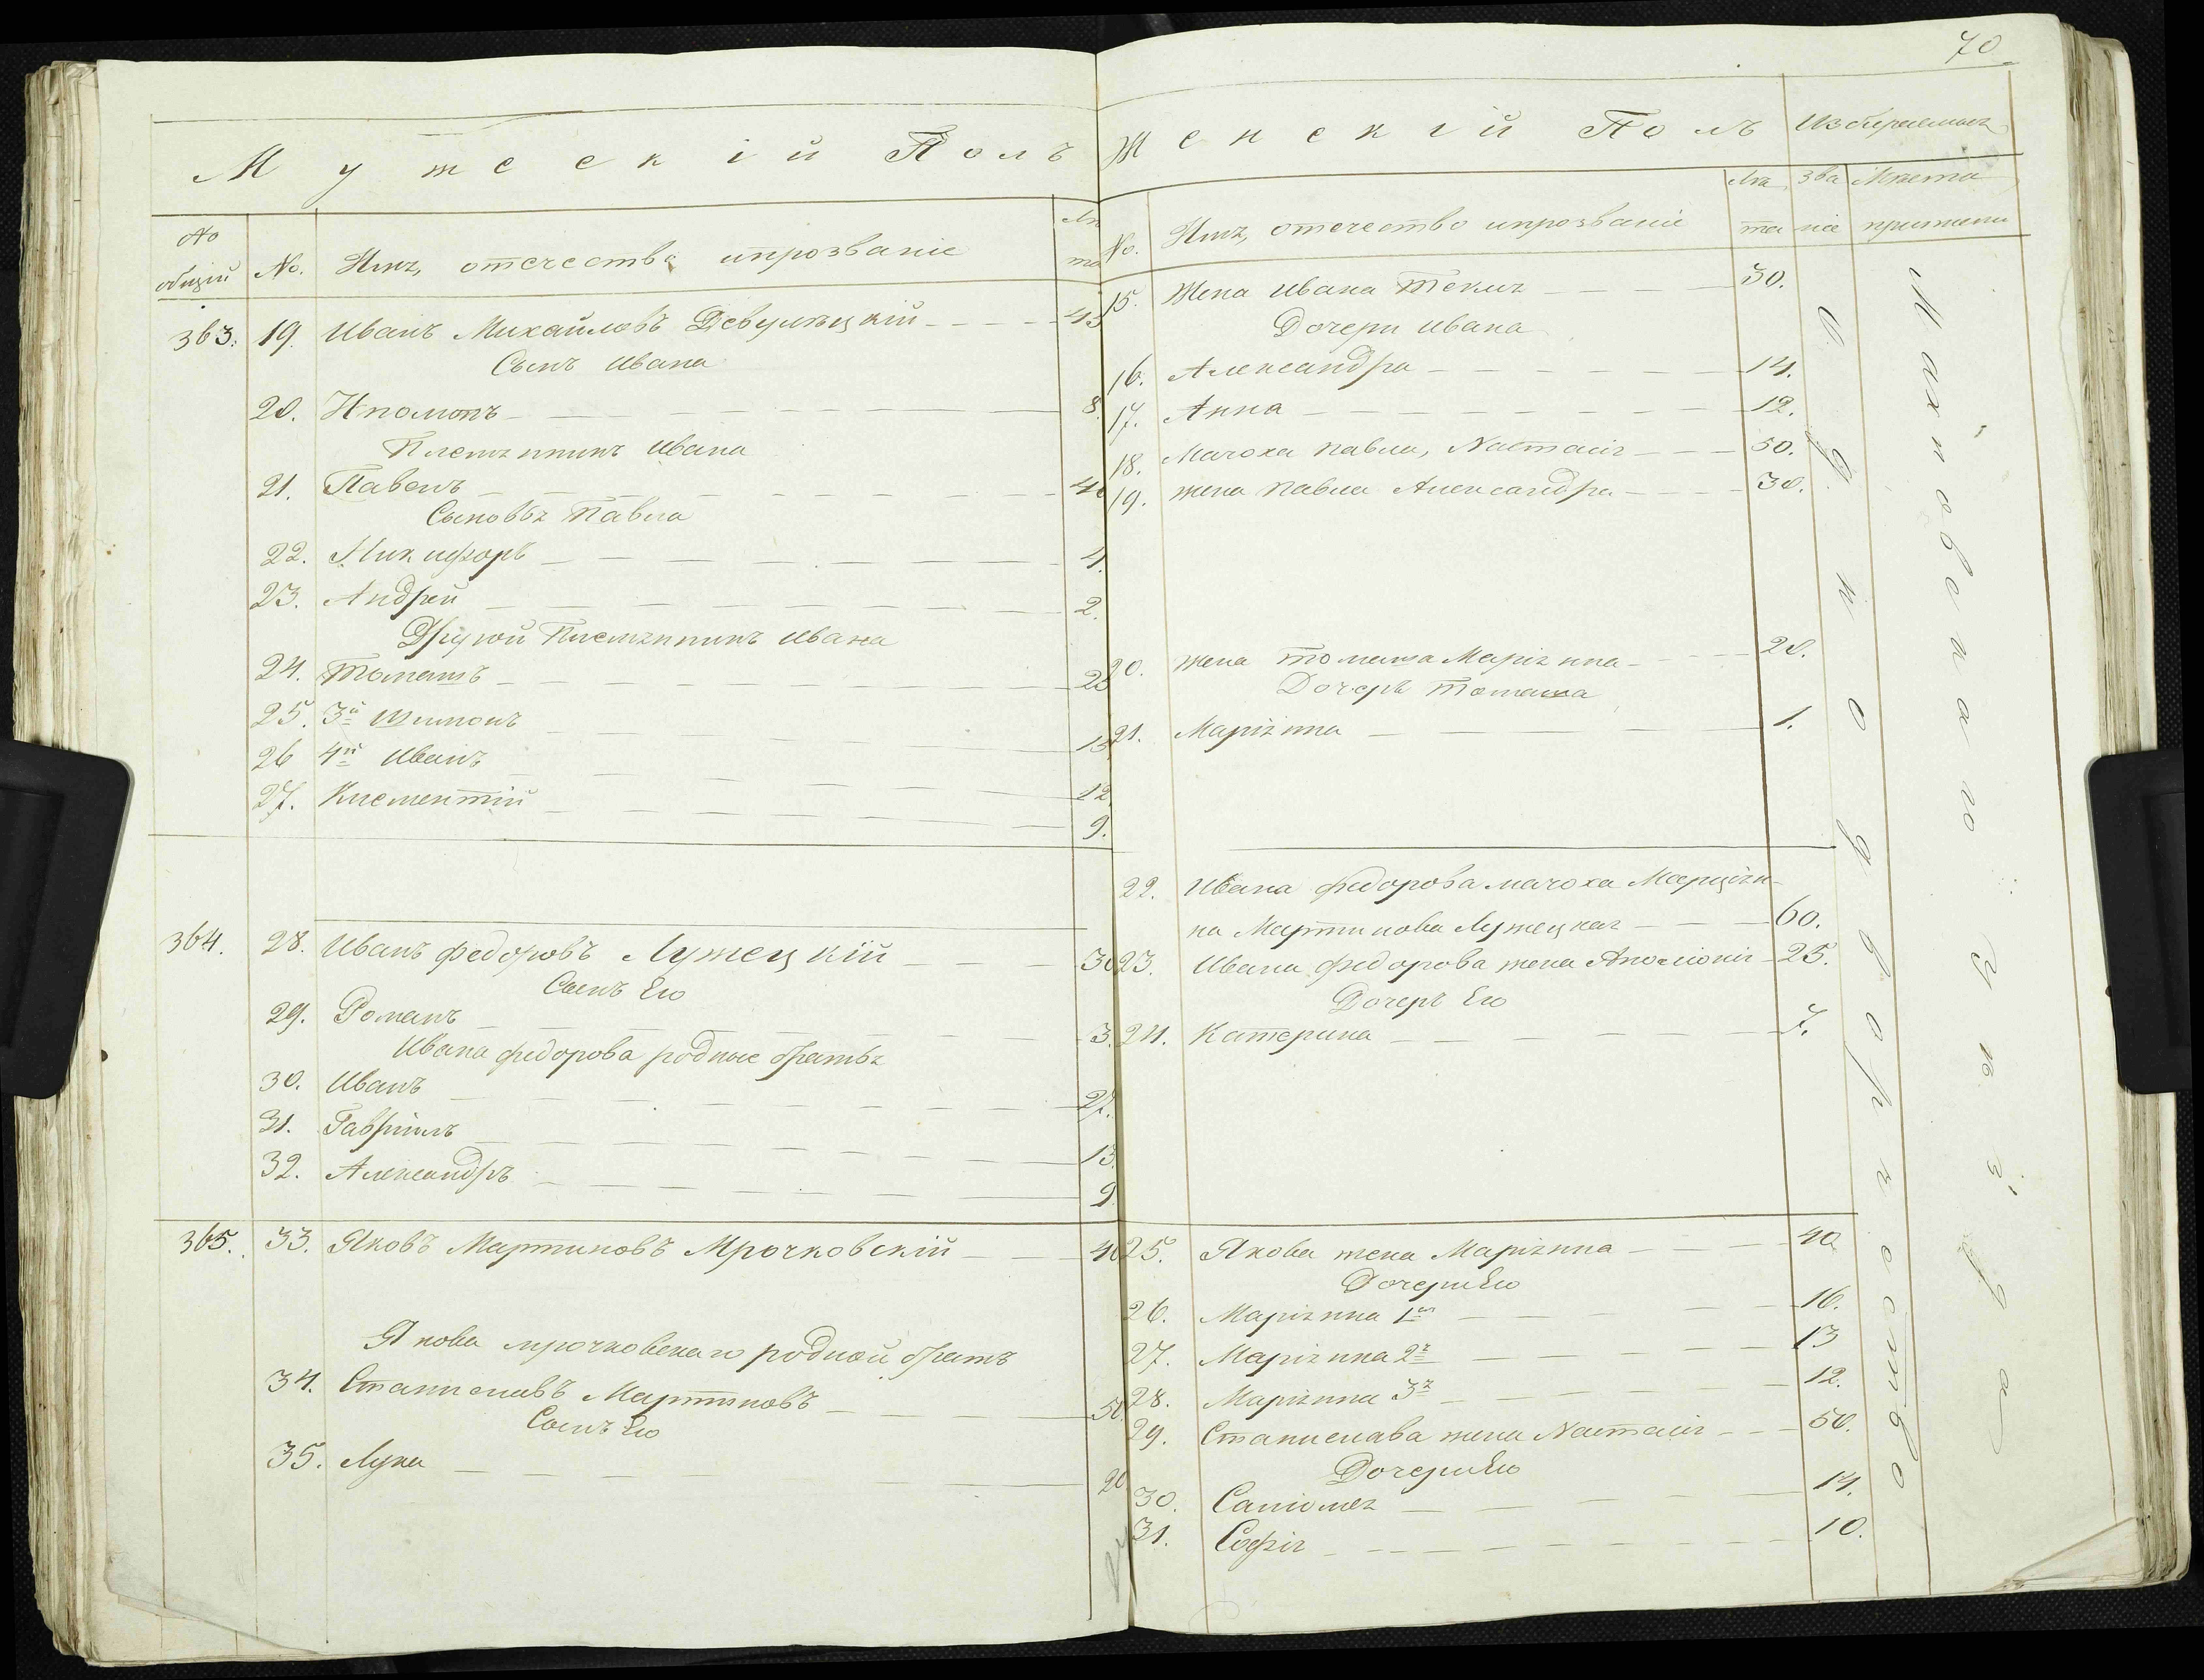 70
Мужескій Полъ
No общій
No.
Имя, отечество ипрозваніе
Лѣта
363. 19. Иванъ Михайловъ Девульцкій 45
Сынъ Ивана
20. 8.
Племянникъ Ивана
21. Павелъ 40
Сыновья Павла
22. Никифоръ 4.
23. Андрей 2.
Другой Племянникъ Ивана
24. Томашъ 25
25. 3й Шимонъ 15
26 4й Иванъ 12.
27. Климентій 9.
364. 28. Иванъ Федоровъ Лужецкій 30
Сынъ Его
29. Романъ 3.
Ивана федорова родные братья
30. Иванъ 27.
31. Гавріилъ 13.
32. Александръ 9.
365. 33. Яковъ Мартиновъ Мрочковскій 40
Якова мрочковскаго родной братъ
34. Станиславъ Мартиновъ 50.
Сынъ Его
35. Лука 20
Женскій Полъ
Избираемыя
No.
Имя, отечество ипрозваніе
Лѣта
Званіе
Мѣста
15. Жена Ивана Текля 30.
Дочери Ивана
16. Александра 14.
17. Анна 12.
18. Мачоха Павла, Настасія 50.
19. жена Павла Александра 30.
20. жена Томаша Маріянна 20.
Дочерь Томаша
21. Маріянна 1.
22. Ивана федорова мачоха Марціян-
на Мартинова Лужецкая 60.
23. Ивана федорова жена Аполіонія 25.
Дочерь Его
24. Катерина 7.
25. Якова жена Маріянна 40
Дочери Его
26. Маріянна 1я 16.
27. Маріянна 2я 13
28. Маріянна 3я 12.
29. Станислава жена Настасія 50.
Дочери Его
30. Саліомея 14.
31. Софія 10.
Однодворчество
Махновскаго Уѣзда